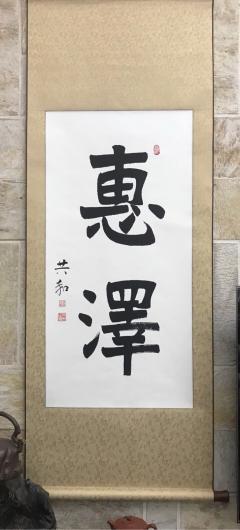 惠澤
共和